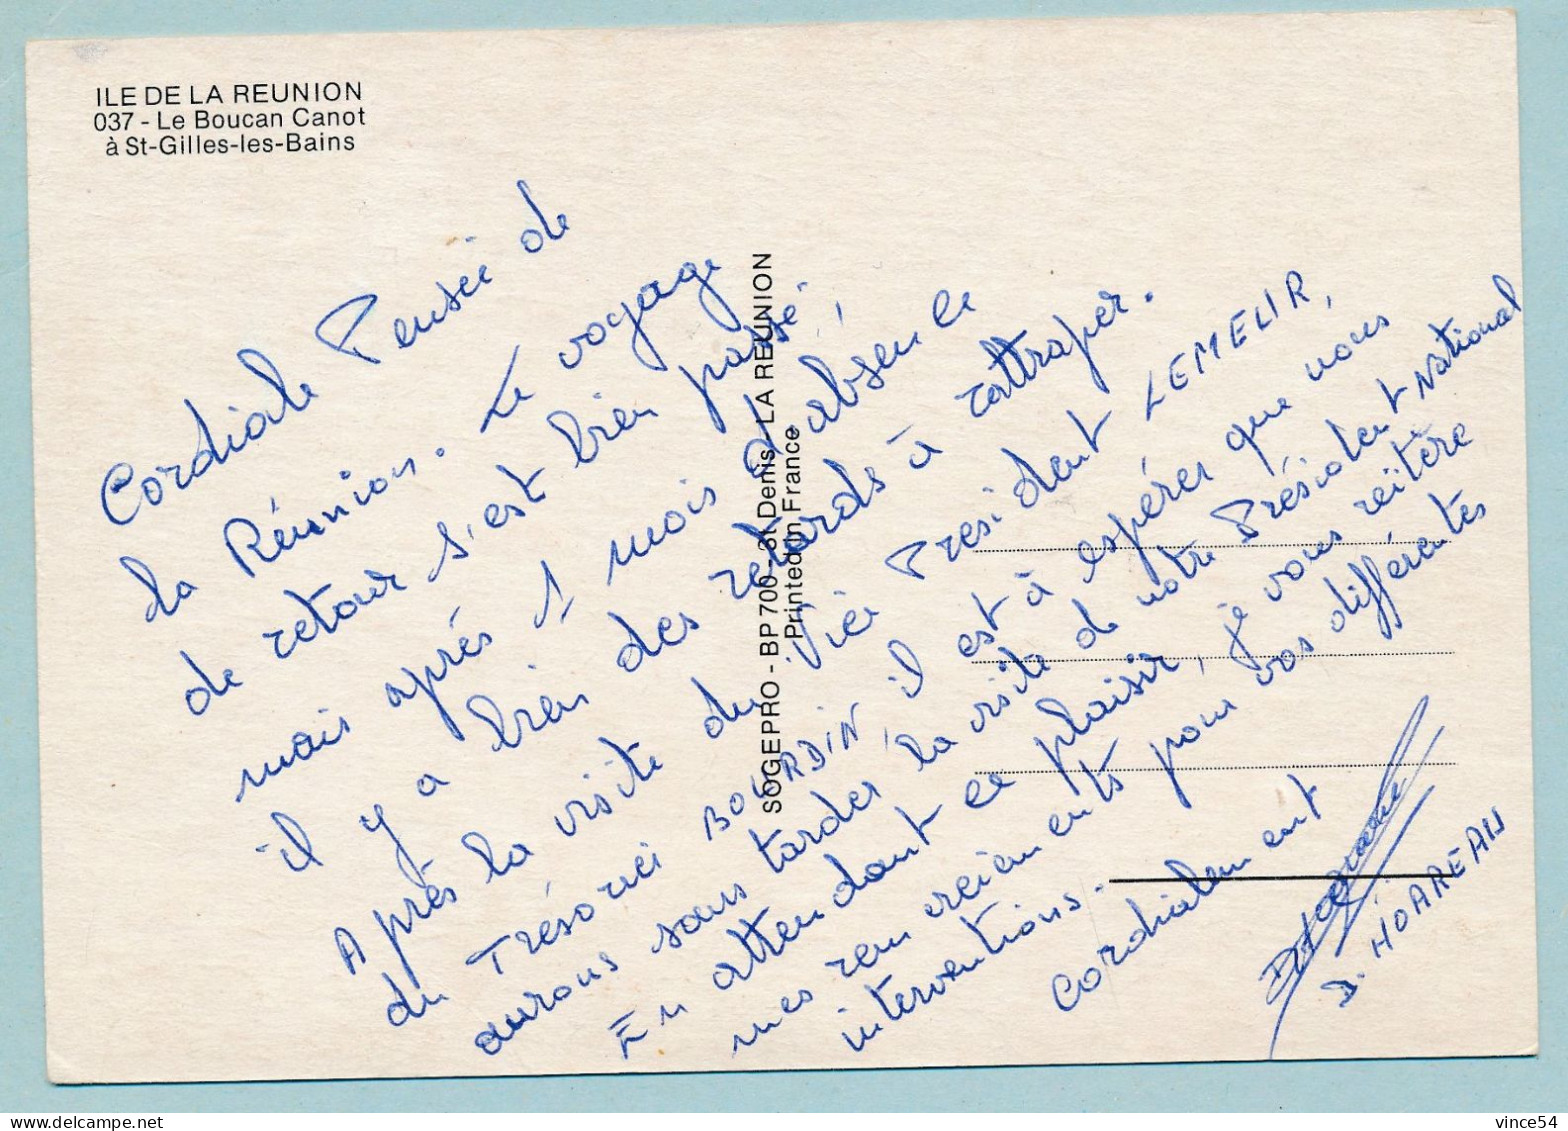 ILE DE LA REUNION
037 - Le Boucan Canot
à St-Gilles-les-Bains
Cordiale Pensée de
la Réunion. Le voyage
de retour s'est bien passé,
mais après 1 mois d'absence
il y a bien des retards à rattraper.
Après la visite du Vice President LEMELIR,
du Trésorier BOURDIN, il est à espérer que nous
aurons sans tarder la visite de notre Président National
En attendant ce plaisir, je vous réitère
mes remerciements pour vos différentes
interventions.
Cordialement
D. HOAREAU
SOGEPRO - BP 700 - St Denis - LA REUNION
Printed in France
vince54